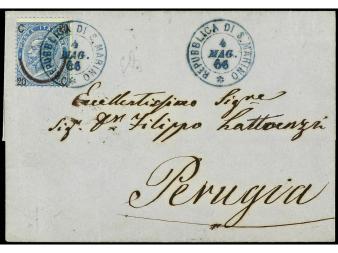 C
20 C
REPUBBLICA DI S. MARINO
4
MAG.
66
REPUBBLICA DI S. MARINO
4
MAG.
66
Eccellentissimo Sigre
Sig. Dr Filippo Lattanzi
Perugia